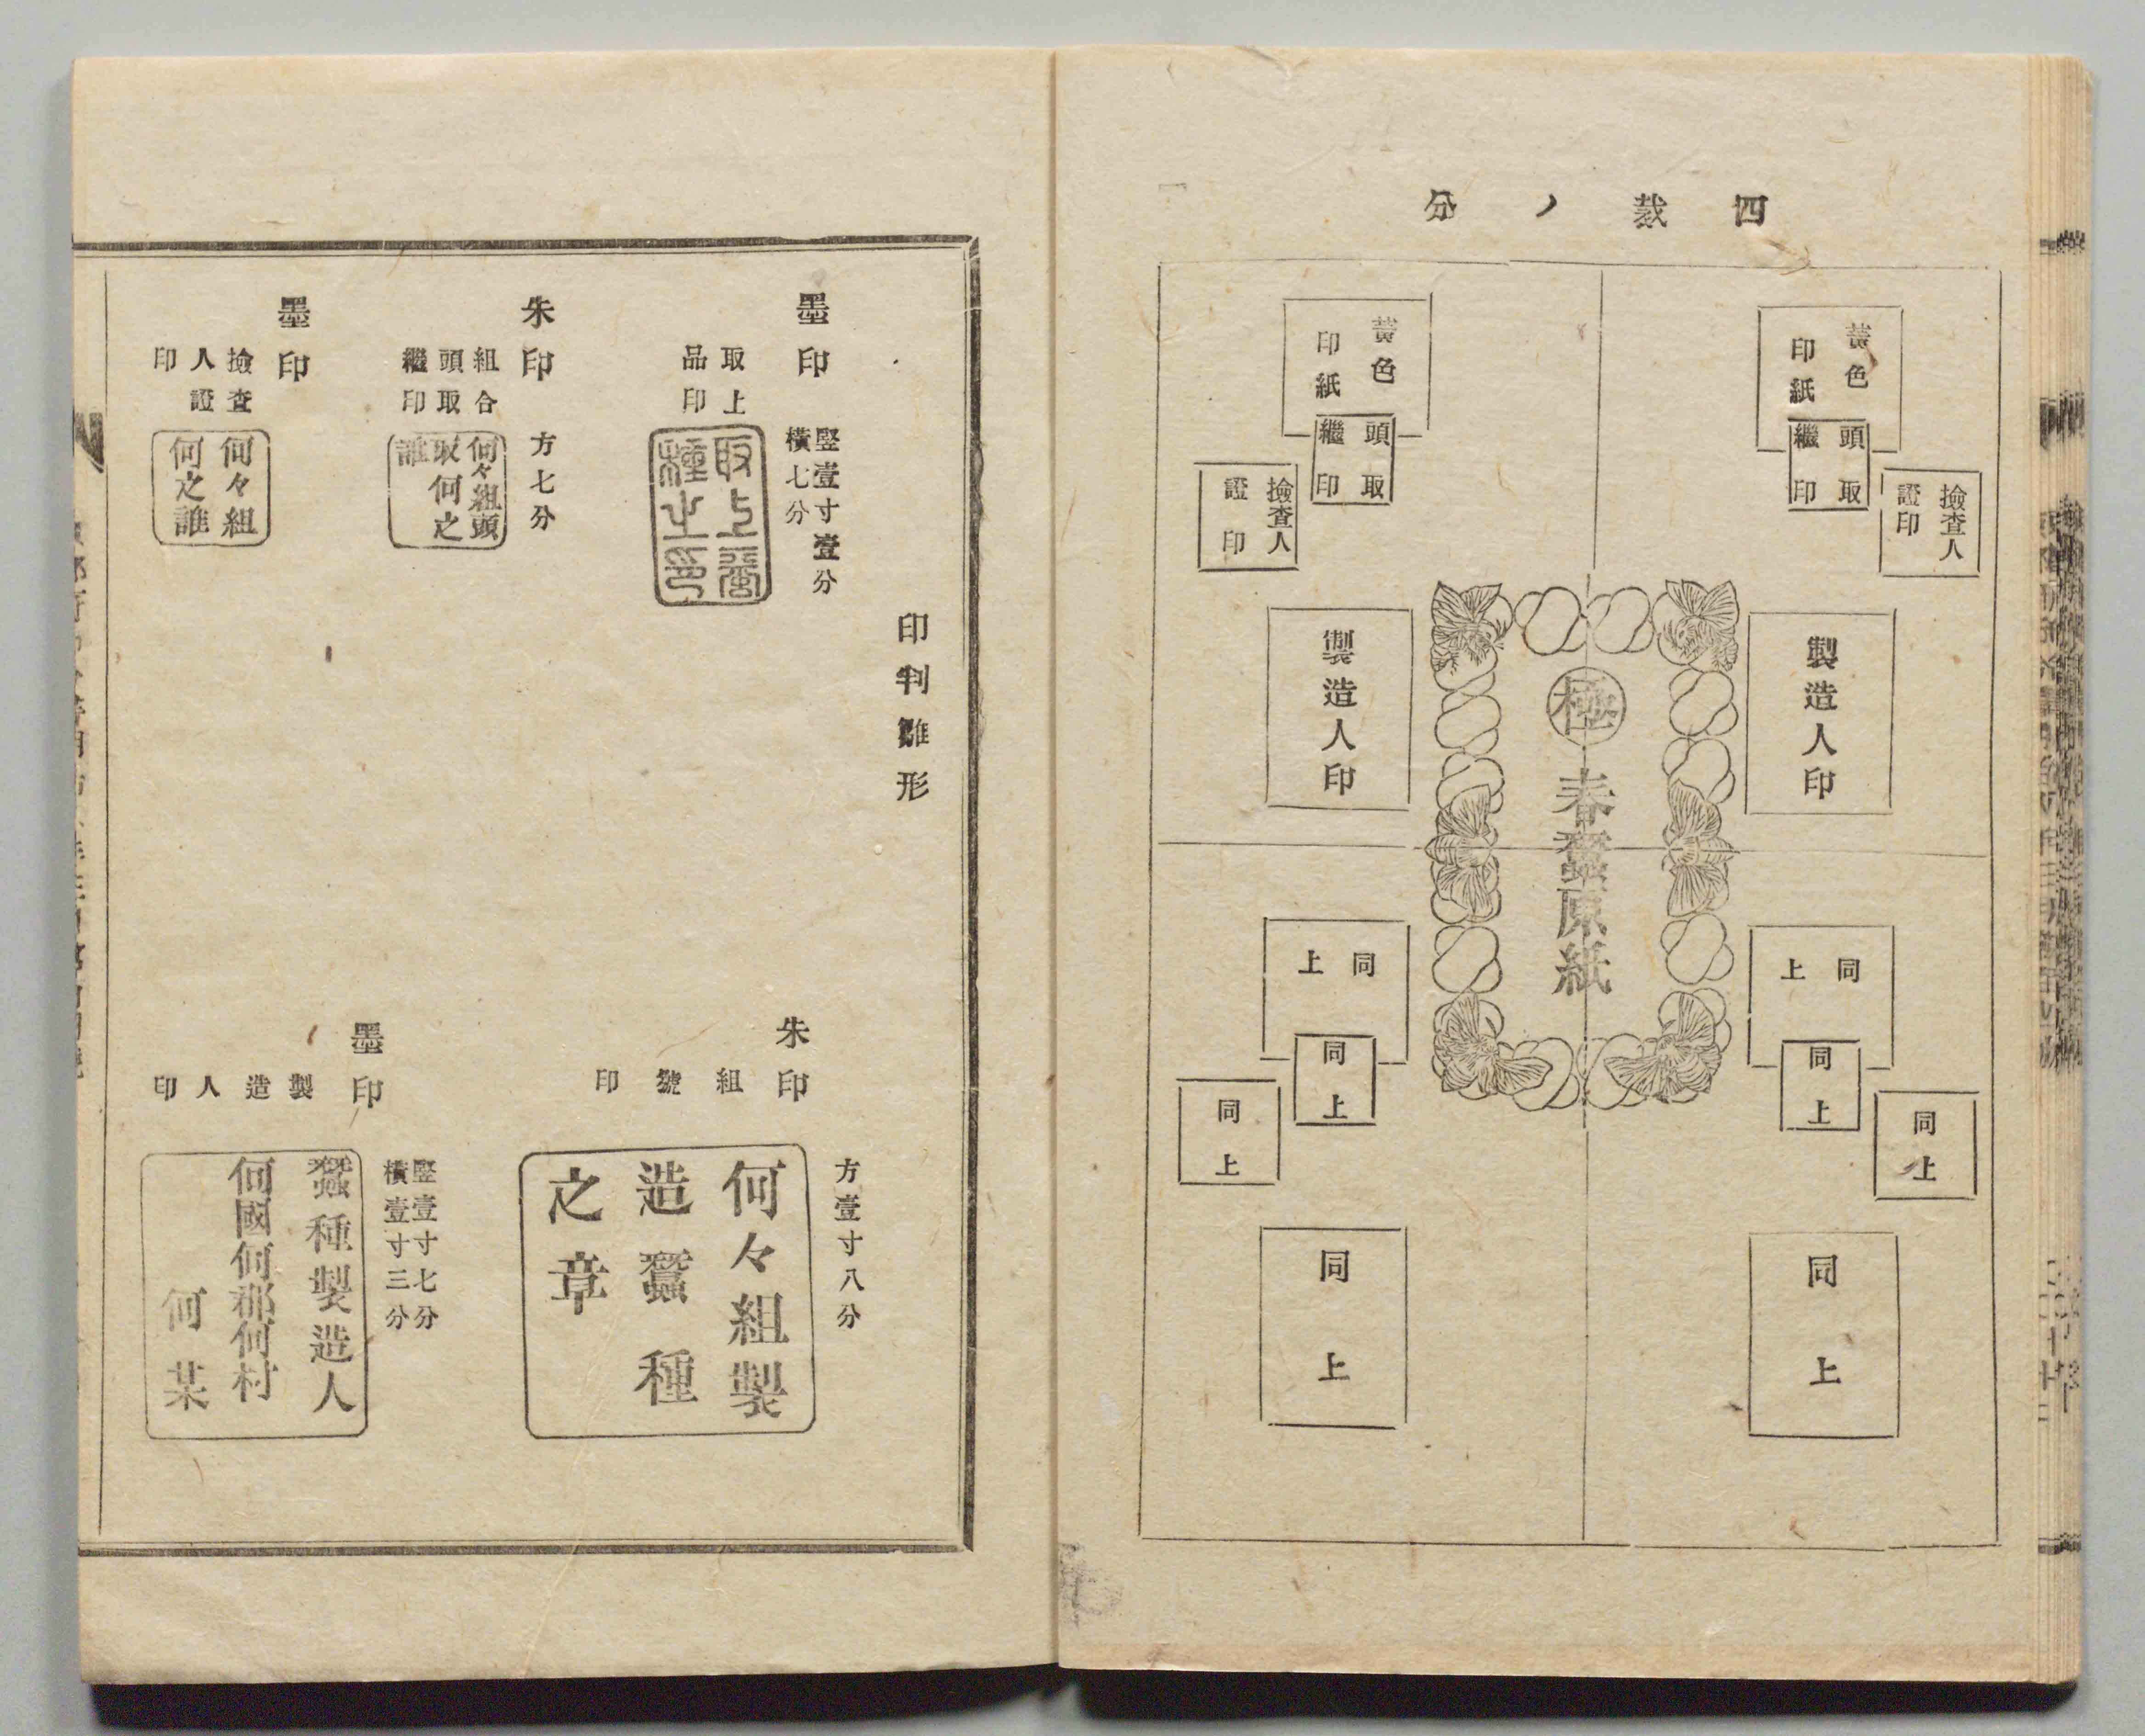 四裁ノ分
黃色
印紙
頭取
繼印
撿査人
證印
製造人印
黃色
印紙
頭取
繼印
撿査人
證印
製造人印
極
春蠶原紙
同上
同上
同上
同上
同上
同上
同上
同上
印判雛形
墨印
取上
品印
竪壹寸壹分
橫七分
取上蠶
種之印
朱印
組合
頭取
繼印
方七分
何々組頭
取何之
誰
墨印
撿査
人證
印
何々組
何之誰
朱印
組號印
方壹寸八分
何々組製
造蠶種
之章
墨印
製造人印
竪壹寸七分
橫壹寸三分
蠶種製造人
何國何郡何村
何某